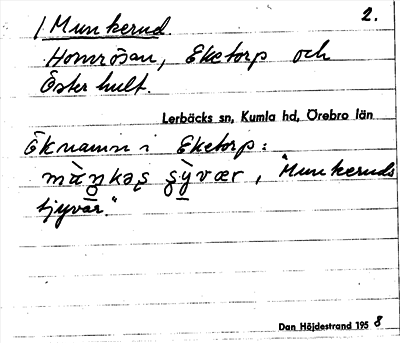 / Munkerud. 2.
Homrösan, Eketorp och
Öster hult.
Lerbäcks sn, Kumla hd, Örebro län
Öknamn i Eketorp:
"Munkeruds
tjyvar."
Dan Höjdestrand 1958